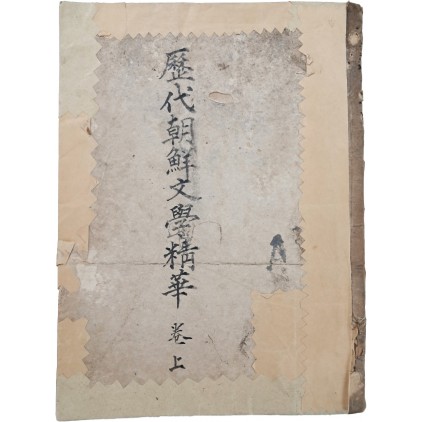 歷代朝鮮文學精華 卷上